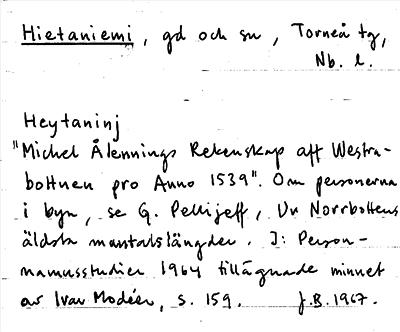 Hietaniemi, gd och sn, Torneå tg,
Nb. l.
Heytaninj
"Michel Ålennings Rekenskap aff Westra-
bottnen pro Anno 1539". Om personerna
i byn, se G. Pellijeff, Ur Norrbottens
äldsta mantalslängder. I: Person-
namnsstudier 1964 tillägnade minnet
av Ivar Modéer, s. 159. J.B. 1967.